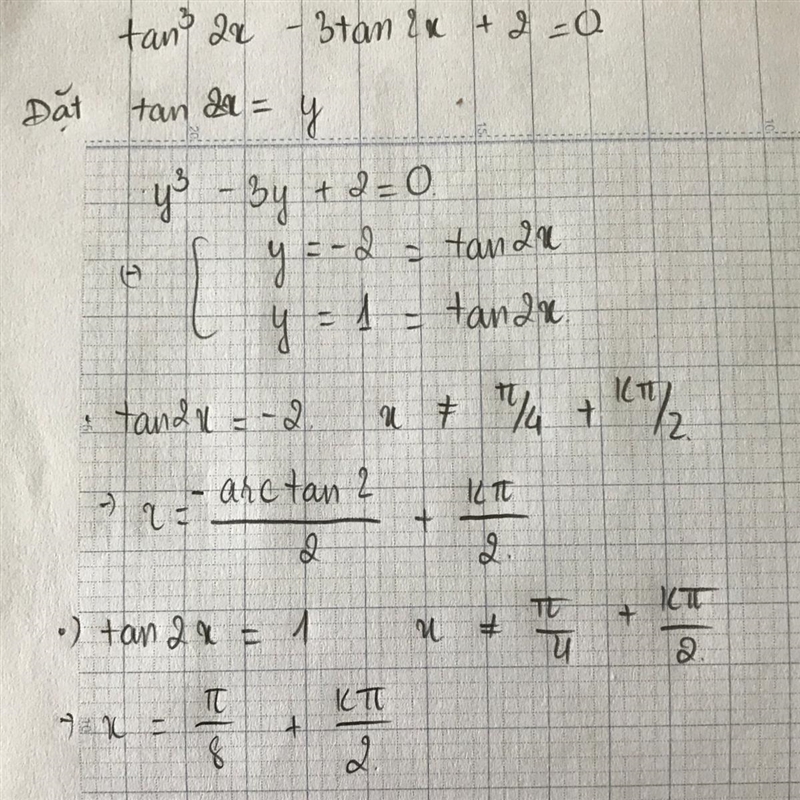 tan³ 2x - 3tan 2x + 2 = 0
Đặt tan 2x = y
y³ - 3y + 2 = 0.
y = -2 = tan2x
y = 1 = tan2x.
tan2x = -2. x ≠ π/4 + kπ/2.
→ x = -arctan 2 / 2 + kπ / 2.
•) tan 2x = 1 x ≠ π/4 + kπ/2.
→ x = π/8 + kπ/2.